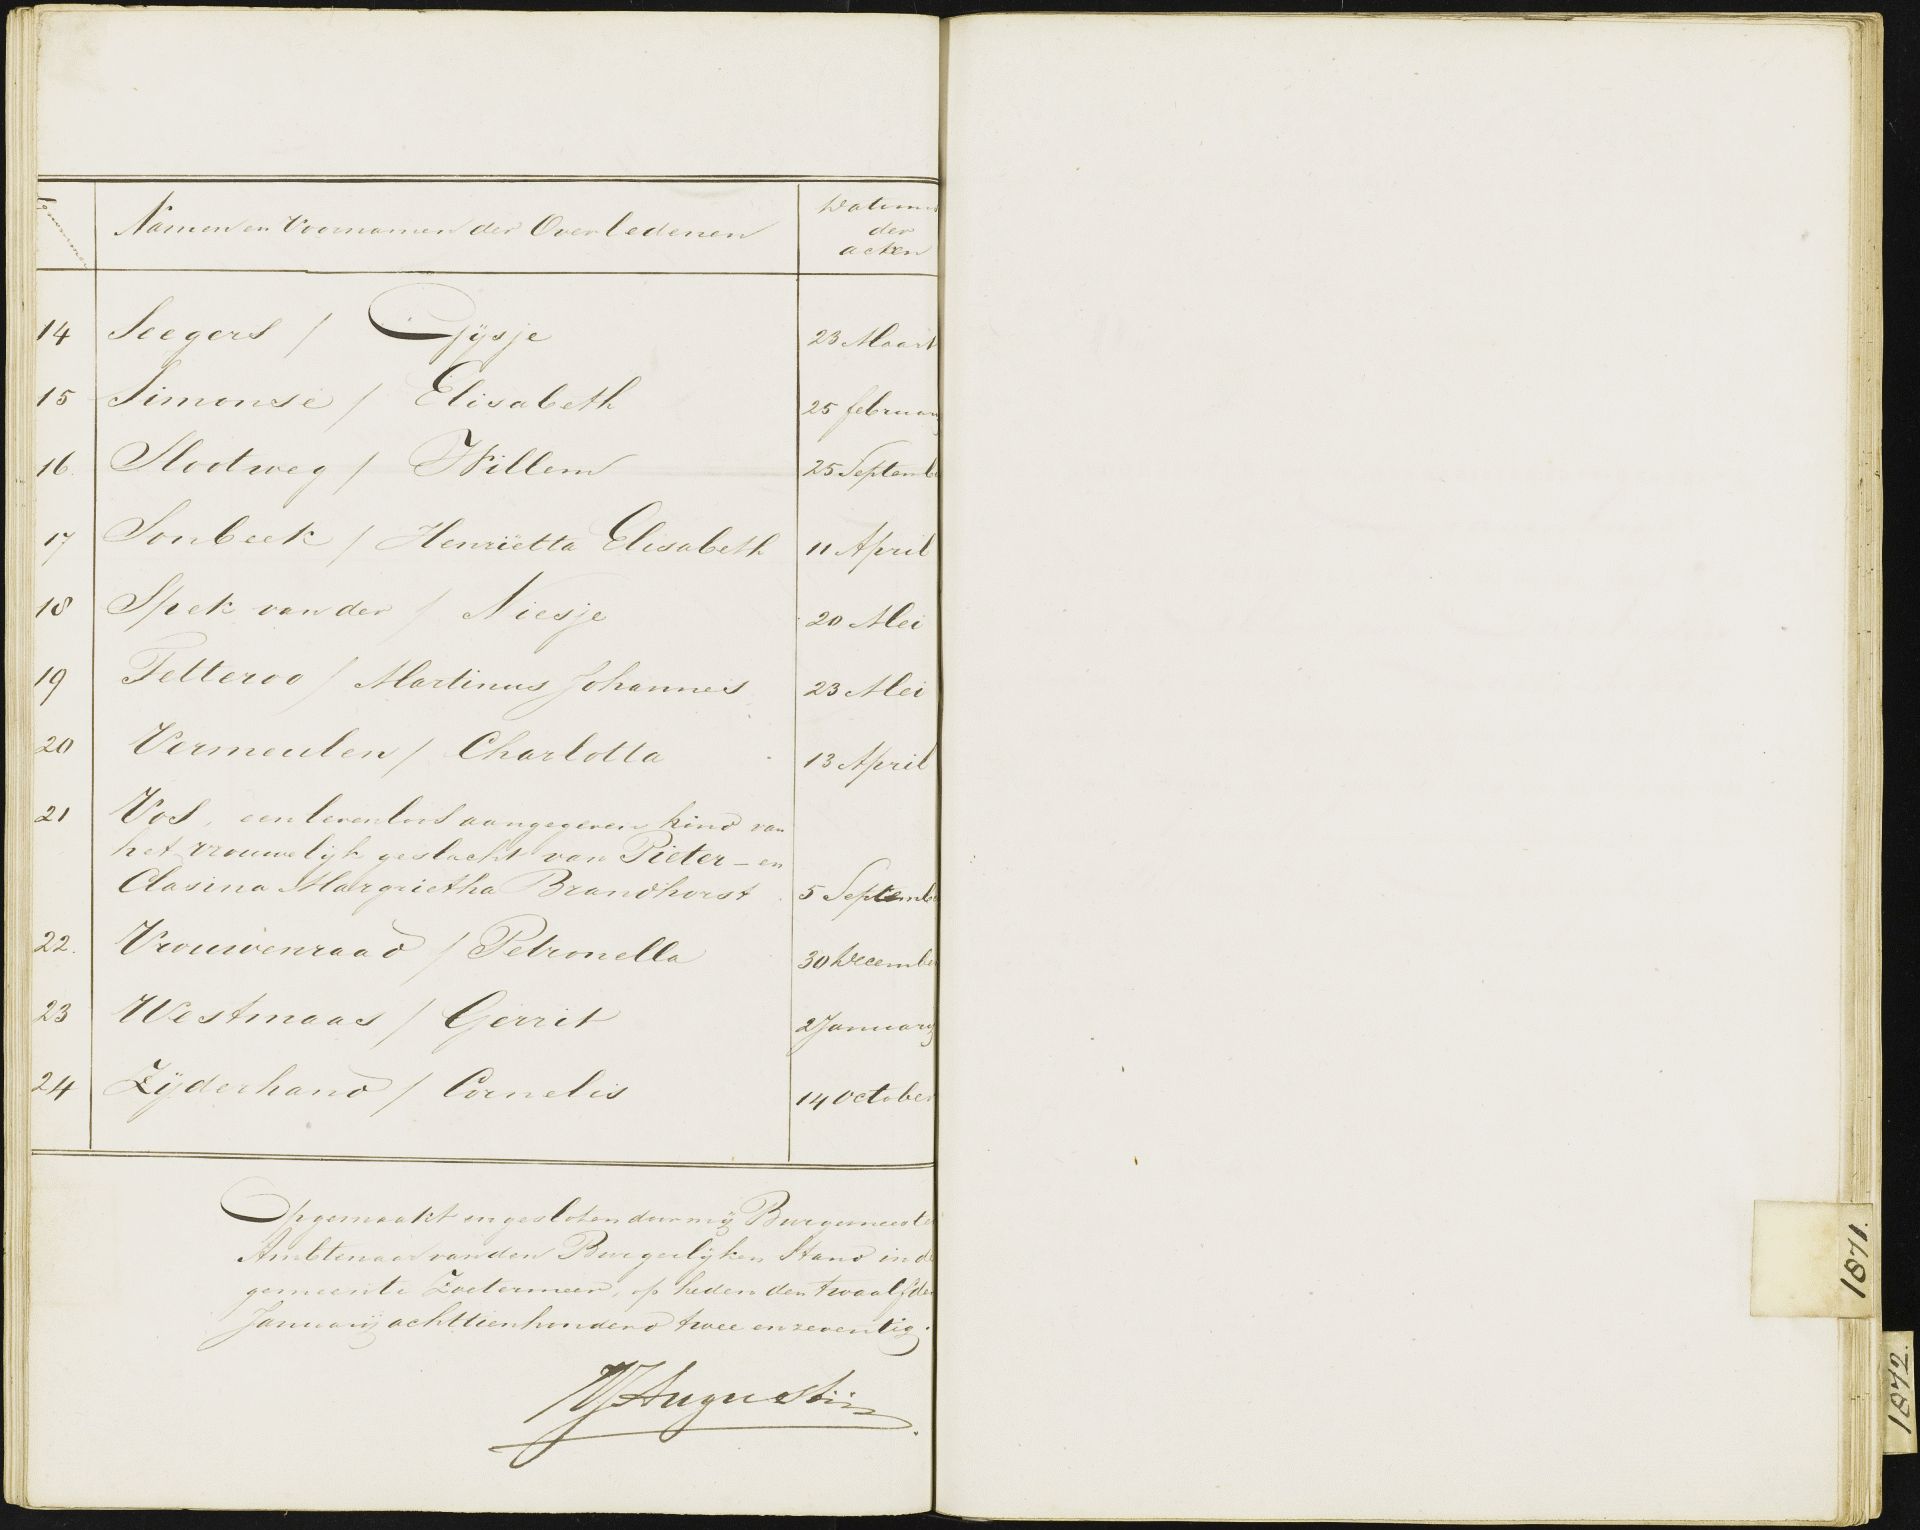 Namen en Voornamen der Overledenen
Datums
der
acten
14 Seegers / Gÿsje 23 Maart
15 Simonse / Elisabeth 25 februarij
16. Slootweg / Willem 25 Septembe
17 Sonbeek / Henriëtta Elisabeth 11 April
18 Spek van der / Niesje 20 Mei
19 Tetteroo / Martinus Johannes 23 Mei
20 Vermeulen / Charlotta 13 April
21 Vos, een levenloos aangegeven kind van
het vrouwelijk geslacht van Pieter – en
Clasina Margrietha Brandhorst 5 Septembe
22. Vrouwenraad / Petronella 30 December
23 Westmaas / Gerrit 2 Januarij
24 Zÿderhand / Cornelis 14 October
Opgemaakt en gesloten door mij Burgemeester
Ambtenaar van den Burgerlijken Stand in de
gemeente Zoetermeer, op heden den twaalfden
Januarij achttienhonderd twee en zeventig.
Augustin
1871.
1872.